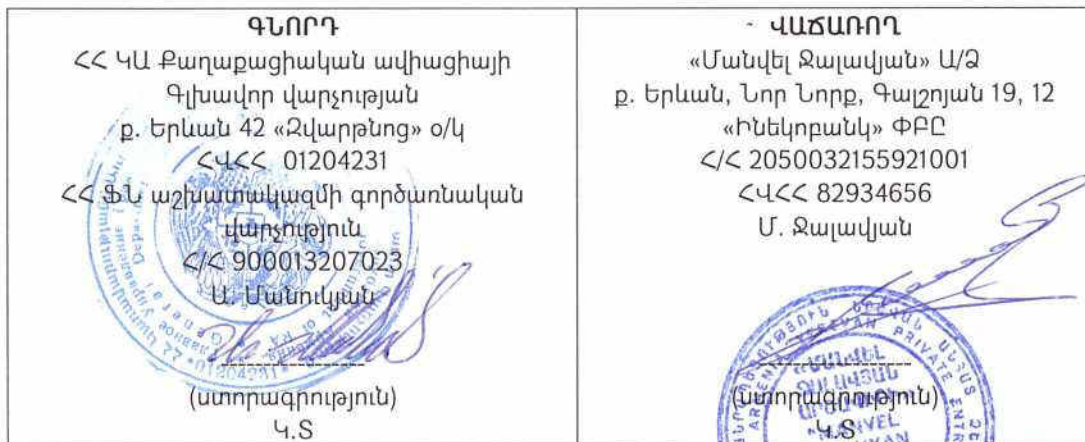 ԳՆՈՐԴ
ՀՀ ԿԱ Քաղաքացիական ավիացիայի
Գլխավոր վարչության
ք. Երևան 42 «Զվարթնոց» օ/կ
ՀՎՀՀ 01204231
ՀՀ ՖՆ աշխատակազմի գործառնական
վարչություն
Հ/Հ 900013207023
Ա. Մանուկյան
(ստորագրություն)
Կ.Տ
ՎԱՃԱՌՈՂ
«Մանվել Ջալավյան» Ա/Ձ
ք. Երևան, Նոր Նորք, Գալշոյան 19, 12
«Ինեկոբանկ» ՓԲԸ
Հ/Հ 2050032155921001
ՀՎՀՀ 82934656
Մ. Ջալավյան
(ստորագրություն)
Կ.Տ